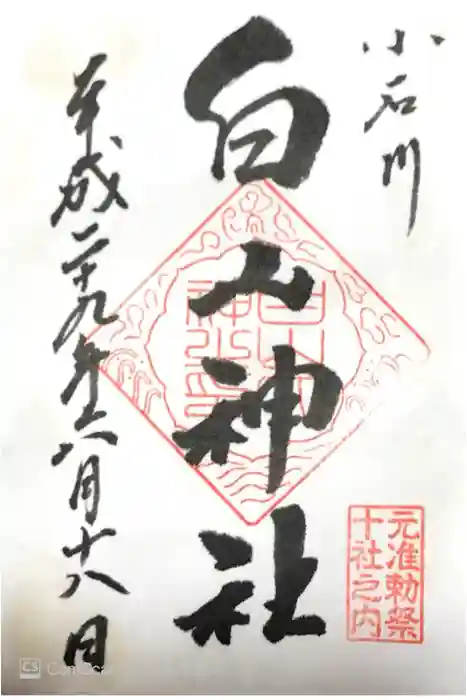 小石川
白山神社
元准勅祭
十社之内
平成二十九年六月十八日
CS CamScanner